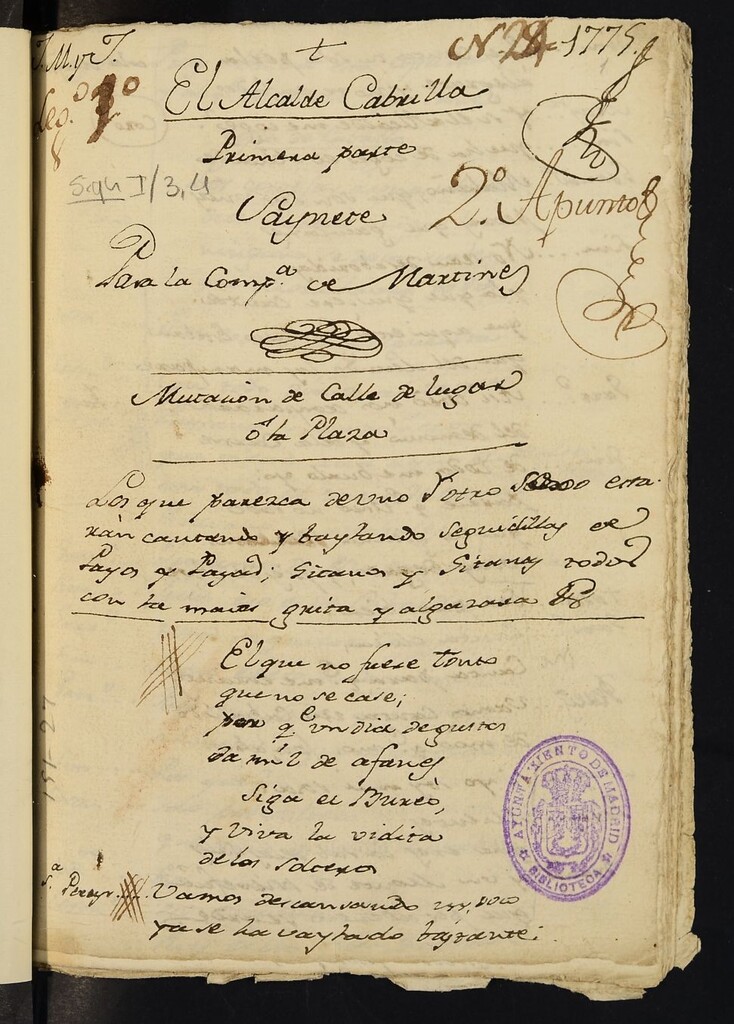 J. M. y J.
+
N. 24 1775
Leg.º 1º
El Alcalde Cabrilla
Primera parte
I/3,4
Saynete
2º. Apunto
Para la Comp.ª de Martinez
Mutacion de Calle de lugar
ó la Plaza
Los que parezca de uno y otro Sexo esta-
ràn cantando y baylando Seguidillas de
Payos y Payas; Gitanos y Gitanas todos
con la maior grita y algazara
El que no fuere tonto
que no se case;
por q.e un dia de gustos
da mil de afanes
Siga el Bureò,
y viva la vidita
de los solteros
S.ª Pereyr.
Vamos descansando un poco
ya se ha vaylado bastante.
151-27
AYUNTAMIENTO DE MADRID
BIBLIOTECA